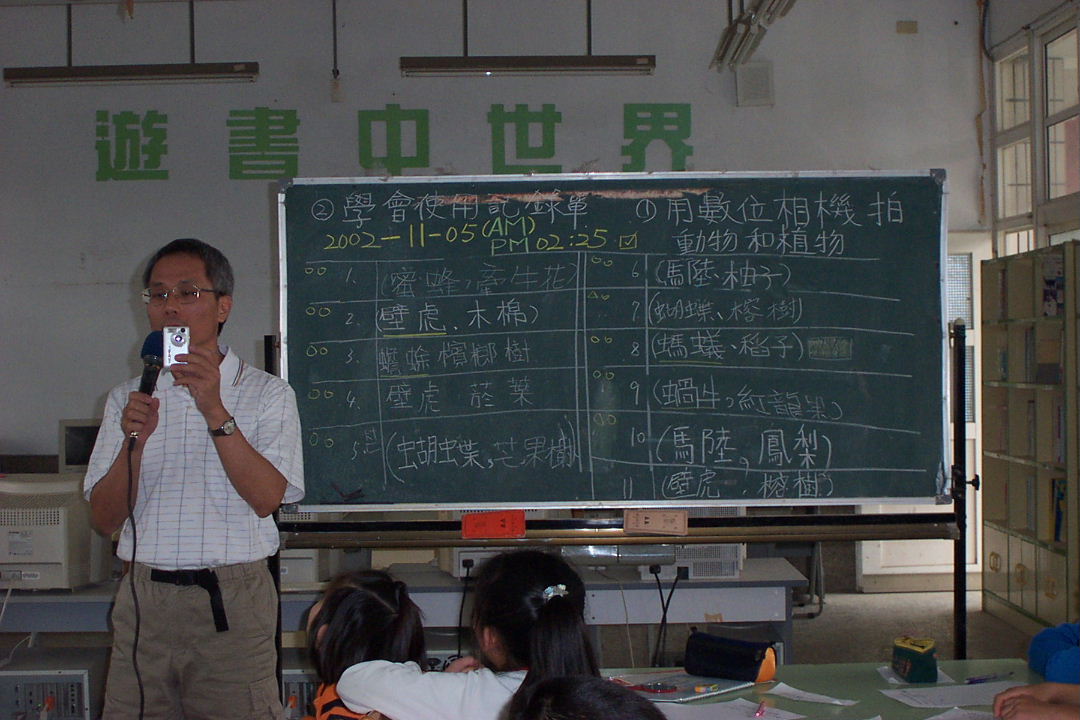 遊書中世界
② 學會使用記錄單
① 用數位相機拍
動物和植物
2002-11-05(AM)
PM 02:25
1. (蜜蜂,牽牛花)
2. (壁虎、木棉)
3. 蟾蜍 檳榔樹
4. 壁虎 菸葉
5. (蝴蝶,芒果樹)
6 (馬陸、柚子)
7 (蝴蝶、榕樹)
8 (螞蟻、稻子)
9 (蝸牛,紅龍果)
10 (馬陸,鳳梨)
11 (壁虎.榕樹)